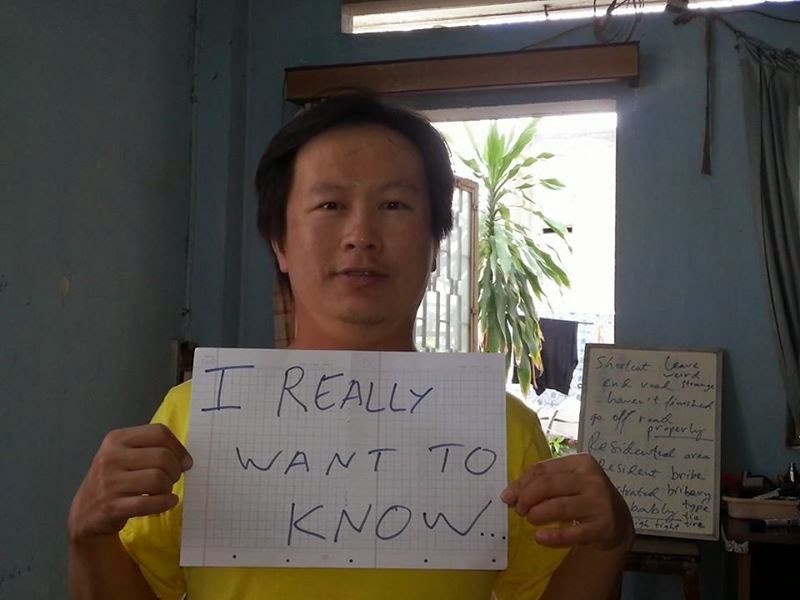 I REALLY
WANT TO
KNOW...
Shortcut leave
weird
end road strange
haven't finished
go off road
properly
Residential area
resident bribe
bribery
type
tie
high tight tire